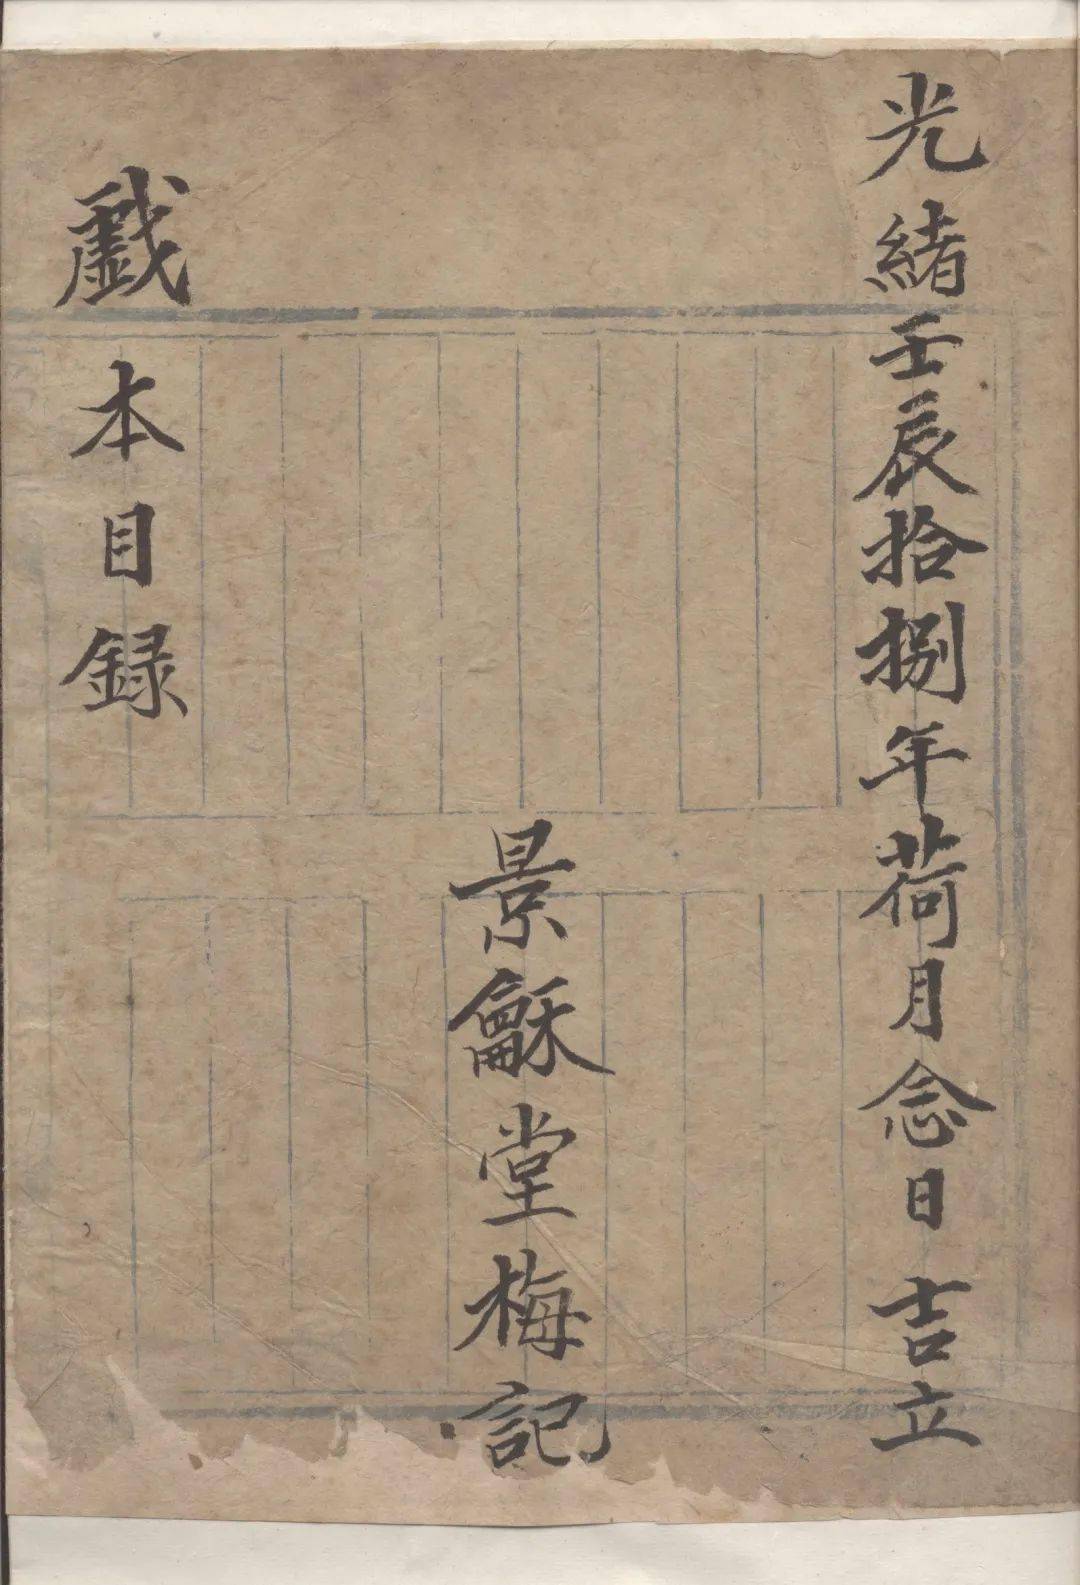 光緒壬辰拾捌年荷月念日吉立
景龢堂梅記
戯本目録